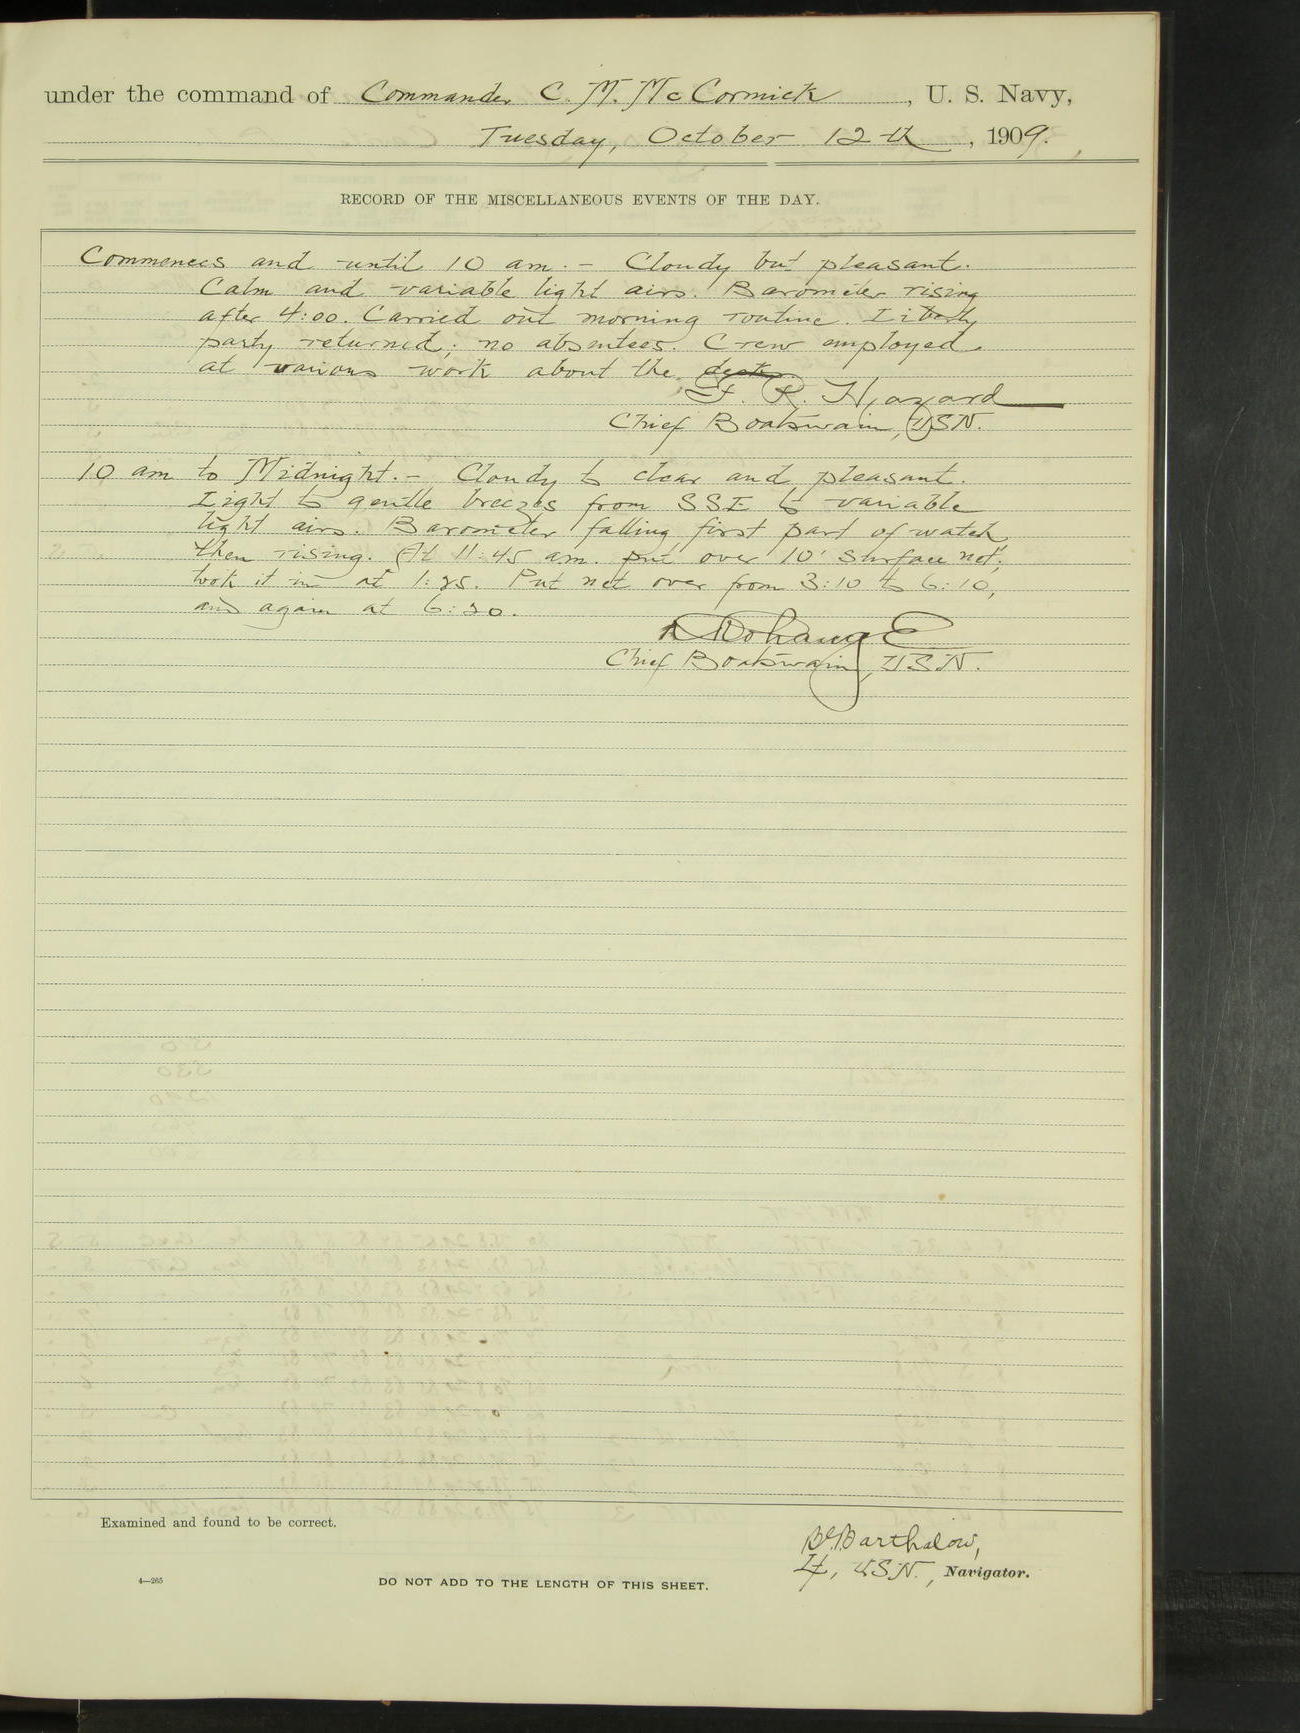 under the command of Commander C. M. McCormick, U. S. Navy,
Tuesday, October 12th, 1909.
RECORD OF THE MISCELLANEOUS EVENTS OF THE DAY.
Commences and until 10 am.- Cloudy but pleasant.
Calm and variable light airs. Barometer rising
after 4:00. Carried out morning routine. Liberty
party returned; no absentees. Crew employed
at various work about the decks.
F. R. Hazard
Chief Boatswain, USN.
10 am to Midnight.- Cloudy to clear and pleasant.
Light to gentle breezes from SSE to variable
light airs. Barometer falling first part of watch
then rising. At 11:45 am. put over 10' surface net;
took it in at 1:25. Put net over from 3:10 to 6:10,
and again at 6:30.
Chief Boatswain, USN.
Examined and found to be correct.
Barthalow,
Lt, USN., Navigator.
4—265
DO NOT ADD TO THE LENGTH OF THIS SHEET.